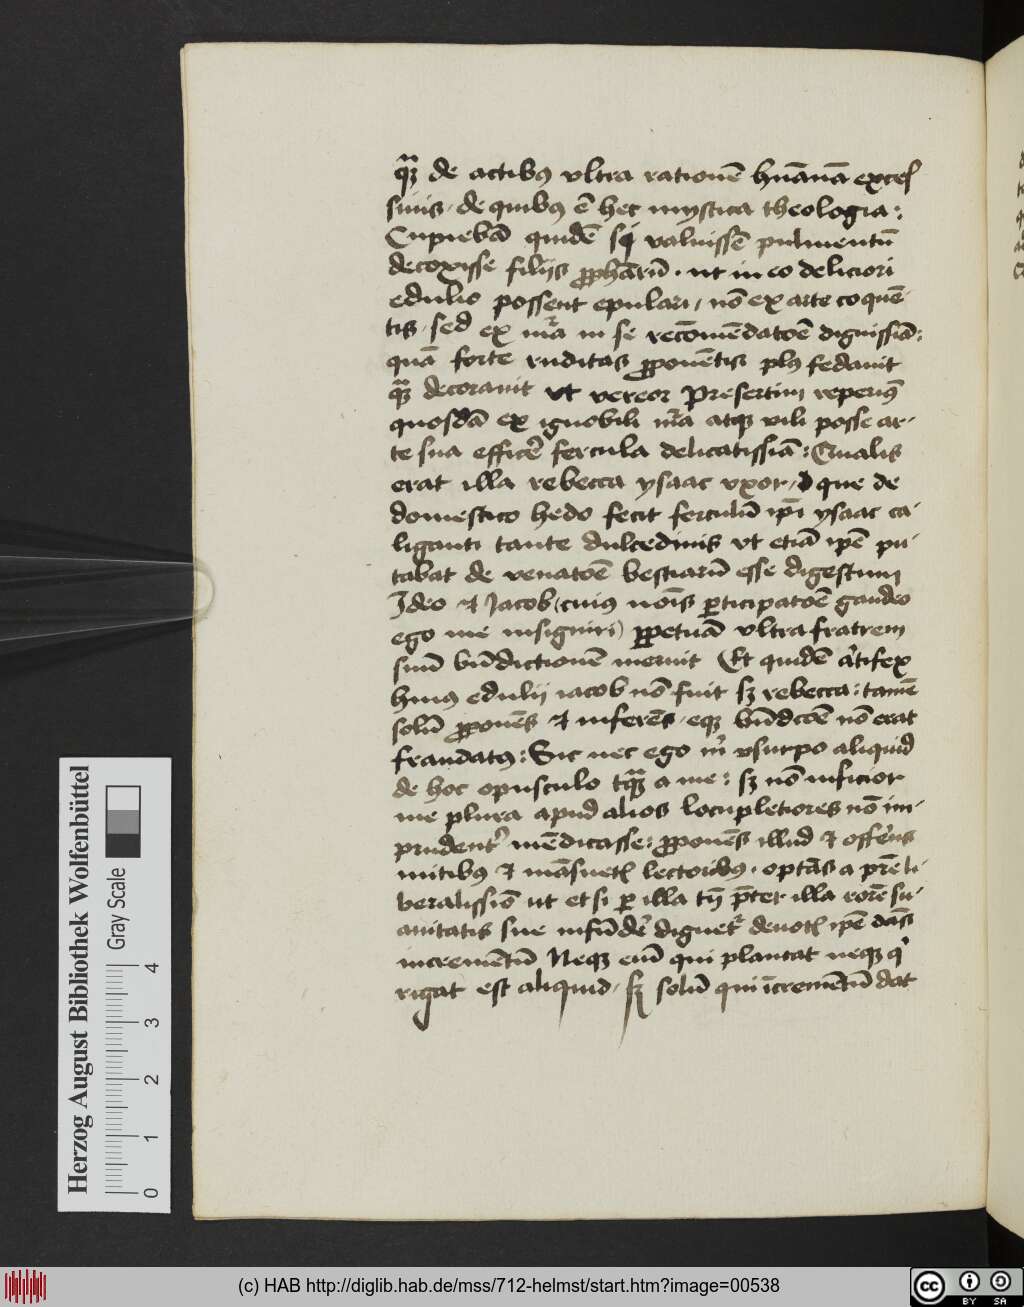 qȝ de actibꝰ vltra rationē hūanā excel
siuis · de quibꝰ ē hec mystica theologia :
Cupiebā quidē si valuissē pulmentū
decoxisse filijs ꝓphārū · ut in eo deliciori
edulio possent epulari / nō ex arte coquē-
tis / sed ex mꝛ̄a in se recōmēdatōē dignissiā :
quā forte ruditas ꝓponētis plꝰ fedauit
qȝ decorauit vt vereor Presertim reperiꝰ
quosdā ex ignobili mꝛ̄a atqȝ vili posse ar-
te sua efficē fercula delicatissiā : Qualis
erat illa rebecca ysaac vxor / que de
domestico hedo fecit ferculū ip̄i ysaac ca-
liganti tante dulcedinis vt etiā ip̄e pu-
tabat de venatōē bestiarū esse digestum
Ideo ⁊ Jacob (cuiꝰ nōis ꝑticipatōē gaudeo
ego me insigniri) ꝑpetuā vltra fratrem
suū bn̄dictionē meruit Et quidē artifex
huiꝰ edulij iacob nō fuit sȝ rebecca : tamē
solū ꝓponēs ⁊ inferēs / eqȝ bn̄dcōē nō erat
fraudatꝰ : Sic nec ego m̄ vsurpo aliquid
de hoc opusculo tqȝ a me : sȝ nō inficior
me plura apud alios locupletiores nō im-
prudentꝭ mēdicasse : ꝓponēs illud ⁊ offerēs
mitibꝰ ⁊ māsuetꝭ lectoribꝰ · optās a pr̄e li-
beralissiō ut et si ꝑ illa tn̄ p̄ter illa rorē su-
auitatis sue infūdē dignetꝛ deuotꝭ ip̄e dās
incremētū Neqȝ eiū qui plantat neqȝ q
rigat est aliquid / sȝ solū qui īcremētū dat
Herzog August Bibliothek Wolfenbüttel
Gray Scale
0 1 2 3 4
(c) HAB http://diglib.hab.de/mss/712-helmst/start.htm?image=00538
cc BY SA